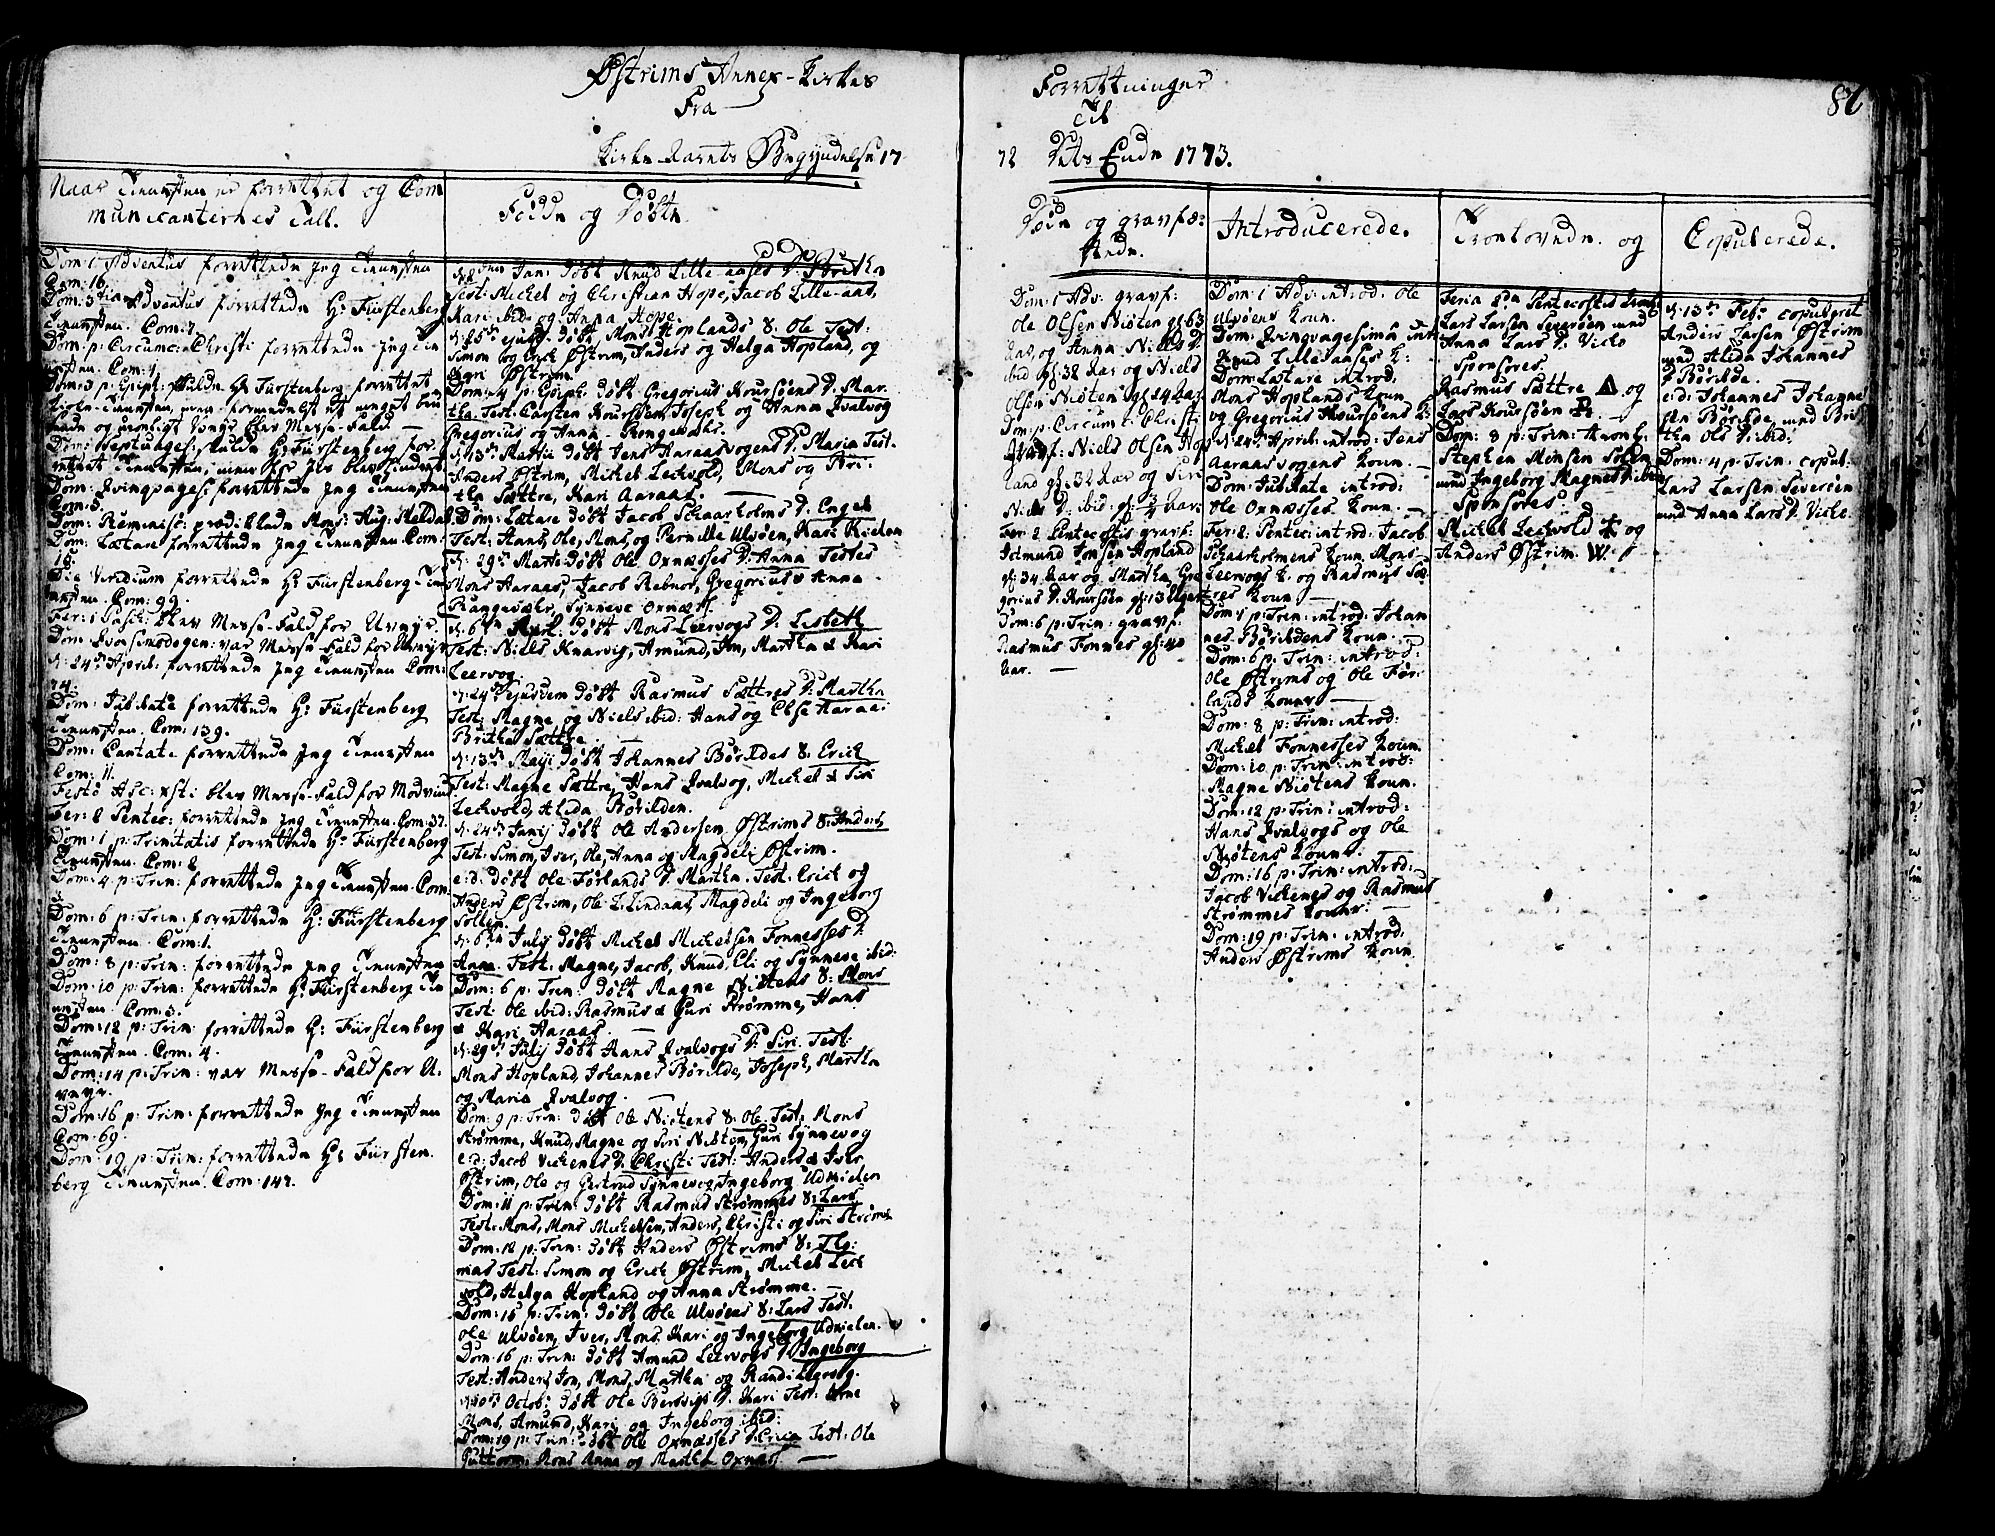 Østrims Annex-Kirkes
Fra
Kirke-Aarets Begyndelse 17
Forrettninger
Til
72 Dets Ende 1773.
87
Naar Tienesten er forrettet og Com
municanternes Tall.
Dom: 1 Adventus forrettede Jeg Tienesten
Com: 16.
Dom: 3 Adventus forrettede Hr Fürstenberg
Tienesten. Com: 7.
Dom: p: Circumc: Christi forrettede Jeg Tie
nesten. Com: 4.
Dom: 3 p: Epiph: skulde Hr Fürstenberg forrettet
Dom: Septuages: skulde Hr Fürstenberg for
rettet Tienesten, men
Dom: Qvinqvages: forrettede Jeg Tienesten
Com: 5.
Dom: Reminisc: prædikede Mons: Aug: Meldal
Dom: Lætare forrettede Jeg Tienesten Com:
18.
Die Viridium forrettede Hr Fürstenberg Tie
nesten. Com: 99.
Fer: 1 Pasch: blev Messe-Fald for Uveyr.
Dom: Qvasimodogen: var Messe-Fald for Uveyr
d: 24 April: forrettede Jeg Tienesten Com:
74.
Dom: Jubilate forrettede Hr Fürstenberg
Tienesten. Com: 139.
Dom: Cantate forrettede Jeg Tienesten
Com: 11.
Festo Asc: xsti blev Messe-Fald for Modvind
Fer: 2 Pentec: forrettede Jeg Tienesten. Com: 37.
Dom: 1 p: Trinitatis forrettede Hr Fürstenberg
Tienesten. Com: 2.
Dom: 4 p: Trin: forrettede Jeg Tienesten. Com:
Dom: 6 p: Trin: forrettede Hr Fürstenberg
Tienesten. Com: 1.
Dom: 8 p: Trin: forrettede Jeg Tienesten
Dom: 10 p: Trin: forrettede Hr Fürstenberg Tie
nesten. Com: 3.
Dom: 12 p: Trin: forrettede Hr Fürstenberg
Tienesten. Com: 4.
Dom: 14 p: Trin: var Messe-Fald for U-
veyr.
Dom: 16 p: Trin: forrettede Jeg Tienesten
Com: 69.
Dom: 19 p: Trin: forrettede Hr Fürsten-
berg Tienesten. Com: 147.
Fødde og Døbte
Jan: døbt Knud Lille-aases D: Britha
Test: Michel og Christian Hope, Jacob Lille-aas,
Kari ibid: og Anna Hope.
d: 25 ejusd: døbt Mons Hoplands S: Ole Test:
Simon og Erick Østrim, Anders og Helga Hopland, og
Kari Østrim.
Dom: 4 p: Epiph: døbt Gregorius Kourøens D: Mar-
tha Test: Carsten Kourøen, Joseph og Anna Qvalvog
Gregorius og Anna Rongevær.
d: 13 Martii døbt Jens Haraasvogens D: Maria Test:
Anders Østrim, Michel Leckvold, Mons og Bri-
tha Sættre, Kari Aaraas.
Dom: Lætare døbt Jacob Schaarholms D: Engel
Test: Hans, Ole, Mons, og Pernille Ulvøen, Kari Kielen
d: 29 Marti døbt Ole Oxnæsses D: Anna Testes
Mons Haraas, Jacob Rebnor, Gregorius & Anna
Rangevær, Synneve Oxnæss.
d: 6 April: døbt Mons Leervogs D: Lisbeth
Test: Niels Knarvig, Amund, Jon, Martha & Kari
Leervog.
d: 24 ejusdem døbt Rasmus Sættres D: Martha
Test: Magne og Niels ibid: Hans og Else Haraas
Britha Sættre.
d: 13 Maji døbt Johannes Børildes S: Erick
Test: Magne Sættre, Hans Qvalvog, Michel & Siri
Leckvold, Alida Børilden.
d: 24 Junij døbt Ole Andersen Østrims S: Anders
Test: Simon, Iver, Ole, Anna og Magdeli Østrim.
e:d: døbt Ole Førlands D: Martha. Test: Erick og
Anders Østrim, Ole L: Lindaas, Magdeli og Ingeborg
Sollem.
d: 6 July døbt Michel Michelsen Fonnesses D:
Anna. Test: Magne, Jacob, Knud, Eli og Synneve ibid:
Dom: 6 p: Trin: døbt Magne Niøtens S: Mons
Test: Ole ibid: Rasmus & Guri Strømme, Hans
& Kari Haraas.
d: 29 July døbt Hans Qvalvogs D: Siri. Test:
Mons Hopland, Johannes Børilde, Joseph, Martha
og Maria Qvalvog.
Dom: 9 p: Trin: døbt Ole Niøtens S: Ole Test: Mons
Strømme, Knud, Magne og Siri Niøten, Guri Synnevog
e:d: Jacob Vickenes D: Christi Test: Anders & Iver
Østrim, Ole og Gertrud Synnevog, Ingeborg Udkielen
Dom: 11 p: Trin: døbt Rasmus Strømmes S: Lars
Test: Mons, Mons Michelsen, Anders, Christi og Siri Strømme
Dom: 12 p: Trin: døbt Anders Østrims S: Tho-
mas Test: Simon og Erick Østrim, Michel Leck
vold, Helga Hopland og Anna Strømme.
Dom: 15 p: Trin: døbt Ole Ulvøens S: Lars Test:
Ole Ulvøen, Iver, Mons, Kari og Ingeborg Udkielen.
Dom: 16 p: Trin: døbt Amund Leervogs D: Ingeborg
Test: Anders, Jon, Mons, Martha og Randi Leervog.
Octob: døbt Ole Bersvigs D: Kari Test: Arne
Mons, Amund, Kari og Ingeborg ibid:
Dom: 19 p: Trin: døbt Ole Oxnæsses D: Test: Ole
Guttorm, Mons Anna og Martha Oxnæss.
Døde og gravfæ-
stede.
Dom: 1 Adv: gravf:
Ole Olsen Niøten gl: 63
Aar, og Anna Niels D:
ibid gl: 38 Aar og Niels
Olsen Niøten gl: 14 Aar
Dom: p: Circum: Christi
gravf: Niels Olsen Hop
land gl: 32 Aar og Siri
Niels D: ibid: gl: 3/4 Aar.
Fer: 2 Pentecostis gravf:
Jetmund Jonsen Hopland
gl: 34 Aar og Martha Gre
gorius D: Kourøen gl: 13 Uger
Dom: 6 p: Trin: gravf:
Rasmus Fonnes gl: 40
Aar.
Introducerede.
Dom: 1 Adv: introd: Ole
Ulvøens Koun.
Dom: Qvinqvagesima intr:
Knud Lilleaases K:
Dom: Lætare introd:
Mons Hoplands Koun
og Gregorius Kourøens K:
d: 24 April: introd: Jens
Aaraasvogens Koun.
Dom: Jubilate introd:
Ole Oxnæsses Koun.
Fer: 2 Pentec: introd: Jacob
Schaarholmens Koun, Mons
Leervogs K. og Rasmus Sæ
tres Koun
Dom: 4 p: Trin: introd: Johan
nes Børildens Koun.
Dom: 6 p: Trin: introd:
Ole Østrims og Ole Før-
lands Koner
Dom: 8 p: Trin: introd:
Michel Fonnesses Koun.
Dom: 10 p: Trin: introd:
Magne Niøtens Koun.
Dom: 12 p: Trin: introd:
Hans Qvalvogs og Ole
Niøtens Koner.
Dom: 16 p: Trin: introd:
Jacob Vickenes og Rasmus
Strømmes Koner.
Dom: 19 p: Trin: introd:
Anders Østrims Koun.
Troelovede og
Feria 2da Pentecostes
Lars Larsen Severøen med
Anna Lars D. Vicko
Sponsores.
Rasmus Sættre og
Lars Kourøen
Dom: 8 p: Trin:
Stephen Monsen Solem
med Ingeborg Magnes D: ibid:
Sponsores:
Michel Leckvold og
Anders Østrim.
Copulerede.
d: 13 Feb: copuleret
Anders Larsen Østrim
med Alida Johannes
D Børilde.
e:d: Johannes Johanne
sen Børilde med Bri
tha Ols D: ibid:
Dom: 4 p: Trin: copul:
Lars Larsen Severøen
med Anna Lars D. Vicke.